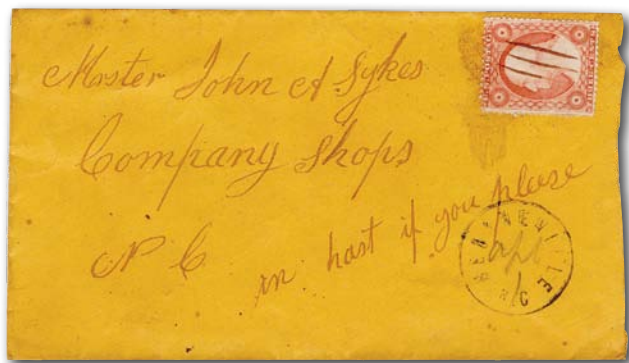 Mister John A Sykes
Company Shops
N C
in hast if you please
Apl
1
N.C